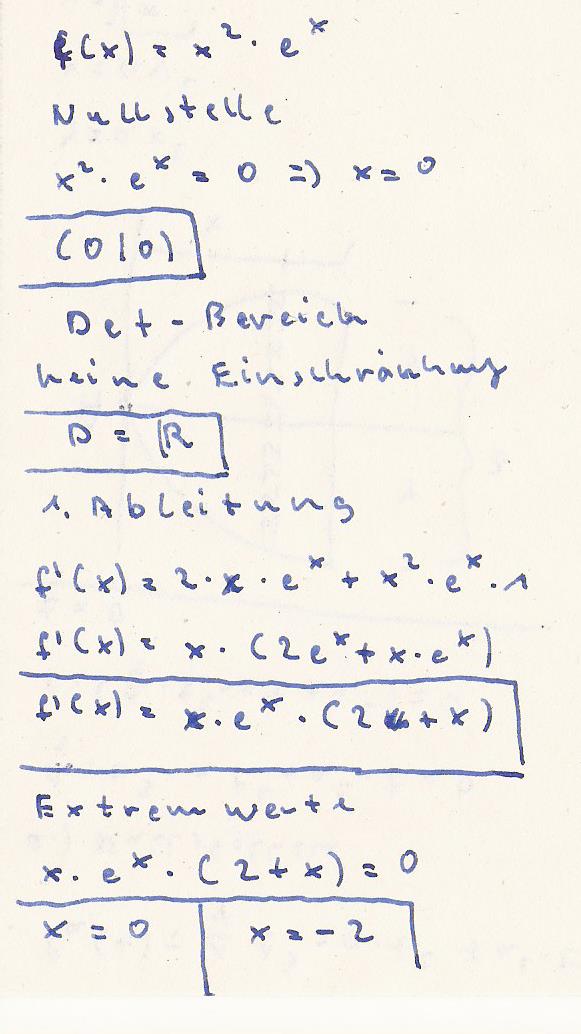 f(x) = x² · eˣ
Nullstelle
x² · eˣ = 0 ⇒ x = 0
(0|0)
Def-Bereich
keine Einschränkung
D = ℝ
1. Ableitung
f'(x) = 2 · x · eˣ + x² · eˣ · 1
f'(x) = x · (2eˣ + x · eˣ)
f'(x) = x · eˣ · (2 + x)
Extremwerte
x · eˣ · (2 + x) = 0
x = 0 | x = -2